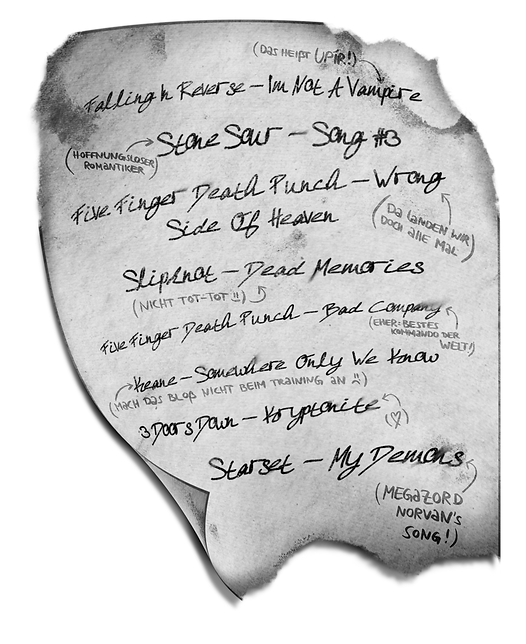 (Das heißt UPIR!)
Falling In Reverse – Im Not A Vampire
Stone Sour – Song #3
(HOFFNUNGSLOSER
ROMANTIKER)
Five Finger Death Punch – Wrong
Side Of Heaven
(Da landen wir
doch alle mal)
Slipknot – Dead Memories
(NICHT TOT-TOT !!)
Five Finger Death Punch – Bad Company
(EHER: BESTES
KOMMANDO DER
WELT!)
Keane – Somewhere Only We Know
(MACH DAS BLOß NICHT BEIM TRAINING AN :()
3 Doors Down – Kryptonite
(♡)
Starset – My Demons
(MEGAZORD
NORVAN'S
SONG!)